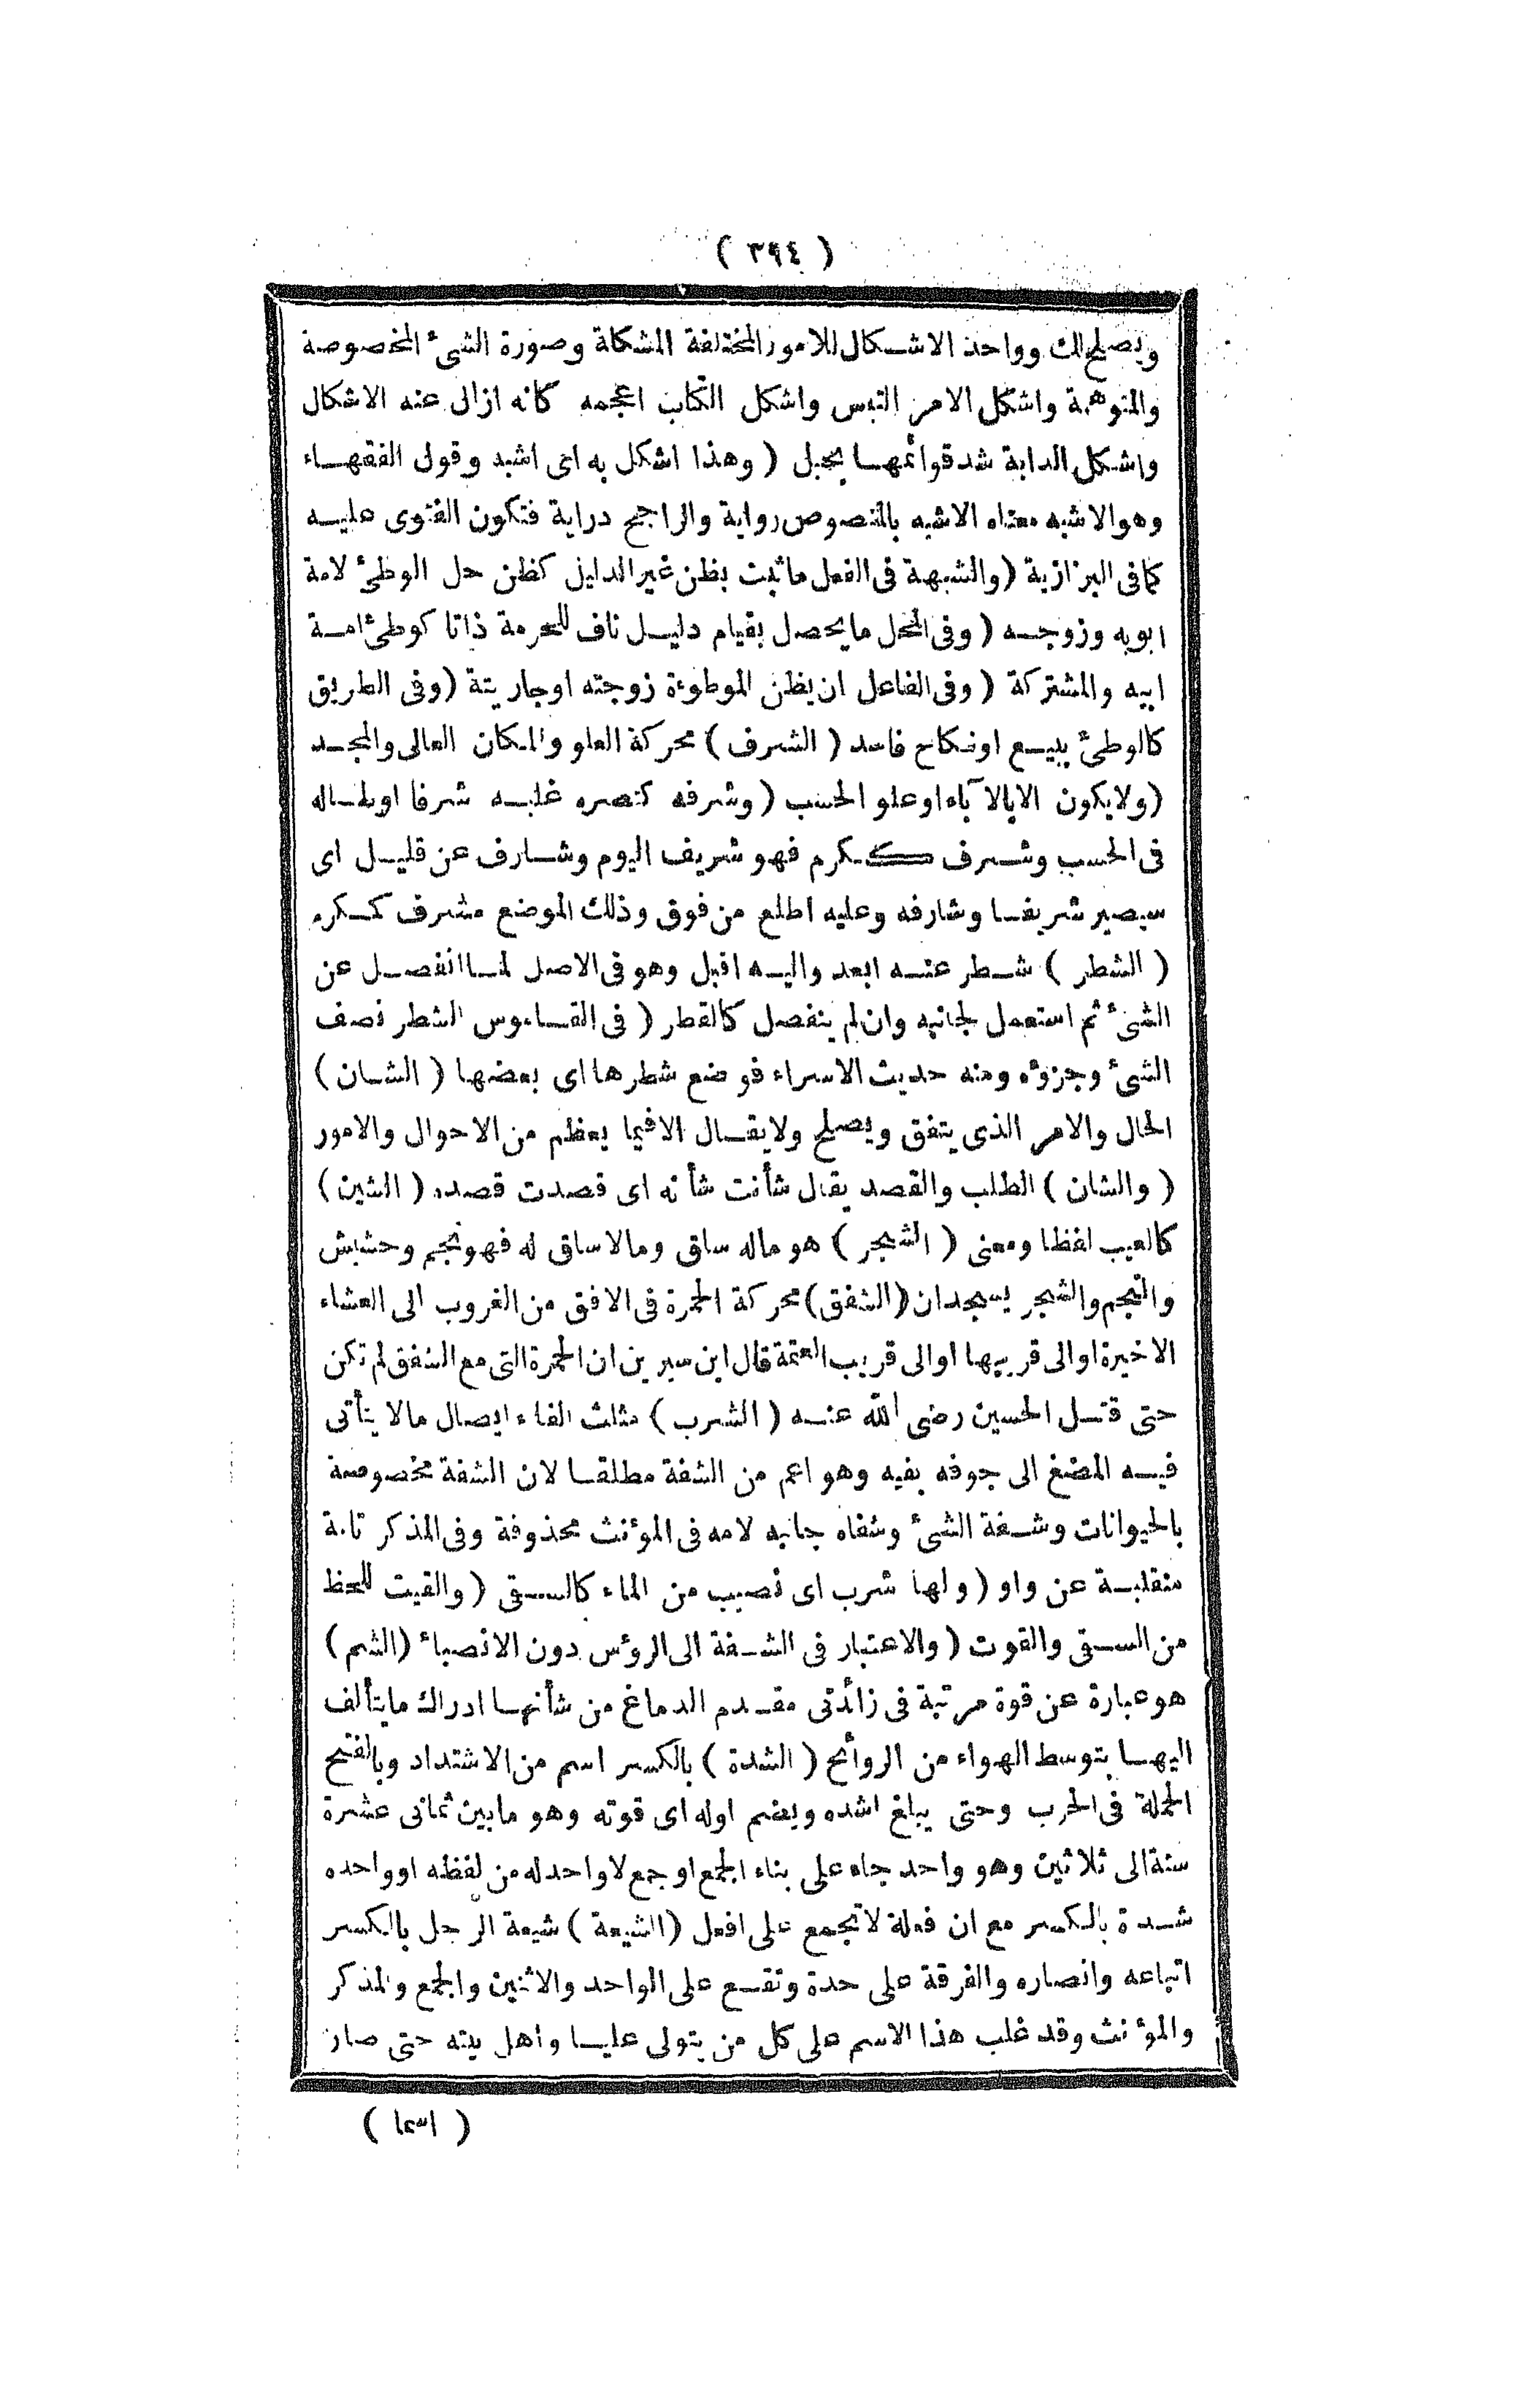 ( ٣٩٤ )
ويصلح لك وواحد الاشكال للامور المختلفة المشكلة وصورة الشئ المخصوصة
والمتوهمة واشكل الامر التبس واشكل الكتاب اعجمه كانه ازال عنه الاشكال
واشكل الدابة شد قوائمها بحبل ( وهذا اشكل به اى اشبه وقول الفقهاء
وهو الاشبه معناه الاشبه بالنصوص رواية والراجح دراية فتكون الفتوى عليه
كما فى البزازية ( والشبهة فى الفعل ما ثبت بظن غير الدليل كظن حل الوطئ لامة
ابويه وزوجه ( وفى المحل ما يحصل بقيام دليل ناف للحرمة ذاتا كوطئ امة
ابيه والمشتركة ( وفى الفاعل ان يظن الموطوءة زوجته او جاريتة ( وفى الطريق
كالوطئ ببيع او نكاح فاسد ( الشرف ) محركة العلو والمكان العالى والمجد
( ولا يكون الا بالآباء او علو الحسب ( وشرفه كنصره غلبه شرفا او طاله
فى الحسب وشرف ككرم فهو شريف اليوم وشارف عن قليل اى
سيصير شريفا وشارفه وعليه اطلع من فوق وذلك الموضع مشرف كمكرم
( الشطر ) شطر عنه ابعد واليه اقبل وهو فى الاصل لما انفصل عن
الشئ ثم استعمل لجانبه وان لم ينفصل كالقطر ( فى القاموس الشطر نصف
الشئ وجزؤه ومنه حديث الاسراء فوضع شطرها اى بعضها ( الشان )
الحال والامر الذى يتفق ويصلح ولا يقال الا فيما يعظم من الاحوال والامور
( والشان ) الطلب والقصد يقال شأنت شأنه اى قصدت قصده ( الشين )
كالعيب لفظا ومعنى ( الشجر ) هو ماله ساق ومالا ساق له فهو نجم وحشيش
والنجم والشجر يسجدان ( الشفق ) محركة الحمرة فى الافق من الغروب الى العشاء
الاخيرة او الى قريبها او الى قريب العتمة قال ابن سيرين ان الحمرة التى مع الشفق لم تكن
حتى قتل الحسين رضى الله عنه ( الشرب ) مثلث الفاء ايصال مالا يتأتى
فيه المضغ الى جوفه بفيه وهو اعم من الشفة مطلقا لان الشفة مخصوصة
بالحيوانات وشفة الشئ وشفاه جانبه لامه فى المؤنث محذوفة وفى المذكر تامة
منقلبة عن واو ( ولها شرب اى نصيب من الماء كالسقى ( والقيت للحظ
من السقى والقوت ( والاعتبار فى الشفة الى الرؤس دون الانصباء ( الشم )
هو عبارة عن قوة مرتبة فى زائدتى مقدم الدماغ من شأنها ادراك ما يتألف
اليها بتوسط الهواء من الروائح ( الشدة ) بالكسر اسم من الاشتداد وبالفتح
الحملة فى الحرب وحتى يبلغ اشده ويضم اوله اى قوته وهو ما بين ثمانى عشرة
سنة الى ثلاثين وهو واحد جاء على بناء الجمع او جمع لا واحد له من لفظه او واحده
شدة بالكسر مع ان فعلة لا تجمع على افعل ( الشيعة ) شيعة الرجل بالكسر
اتباعه وانصاره والفرقة على حدة وتقع على الواحد والاثنين والجمع والمذكر
والمؤنث وقد غلب هذا الاسم على كل من يتولى عليا واهل بيته حتى صار
( اسما )